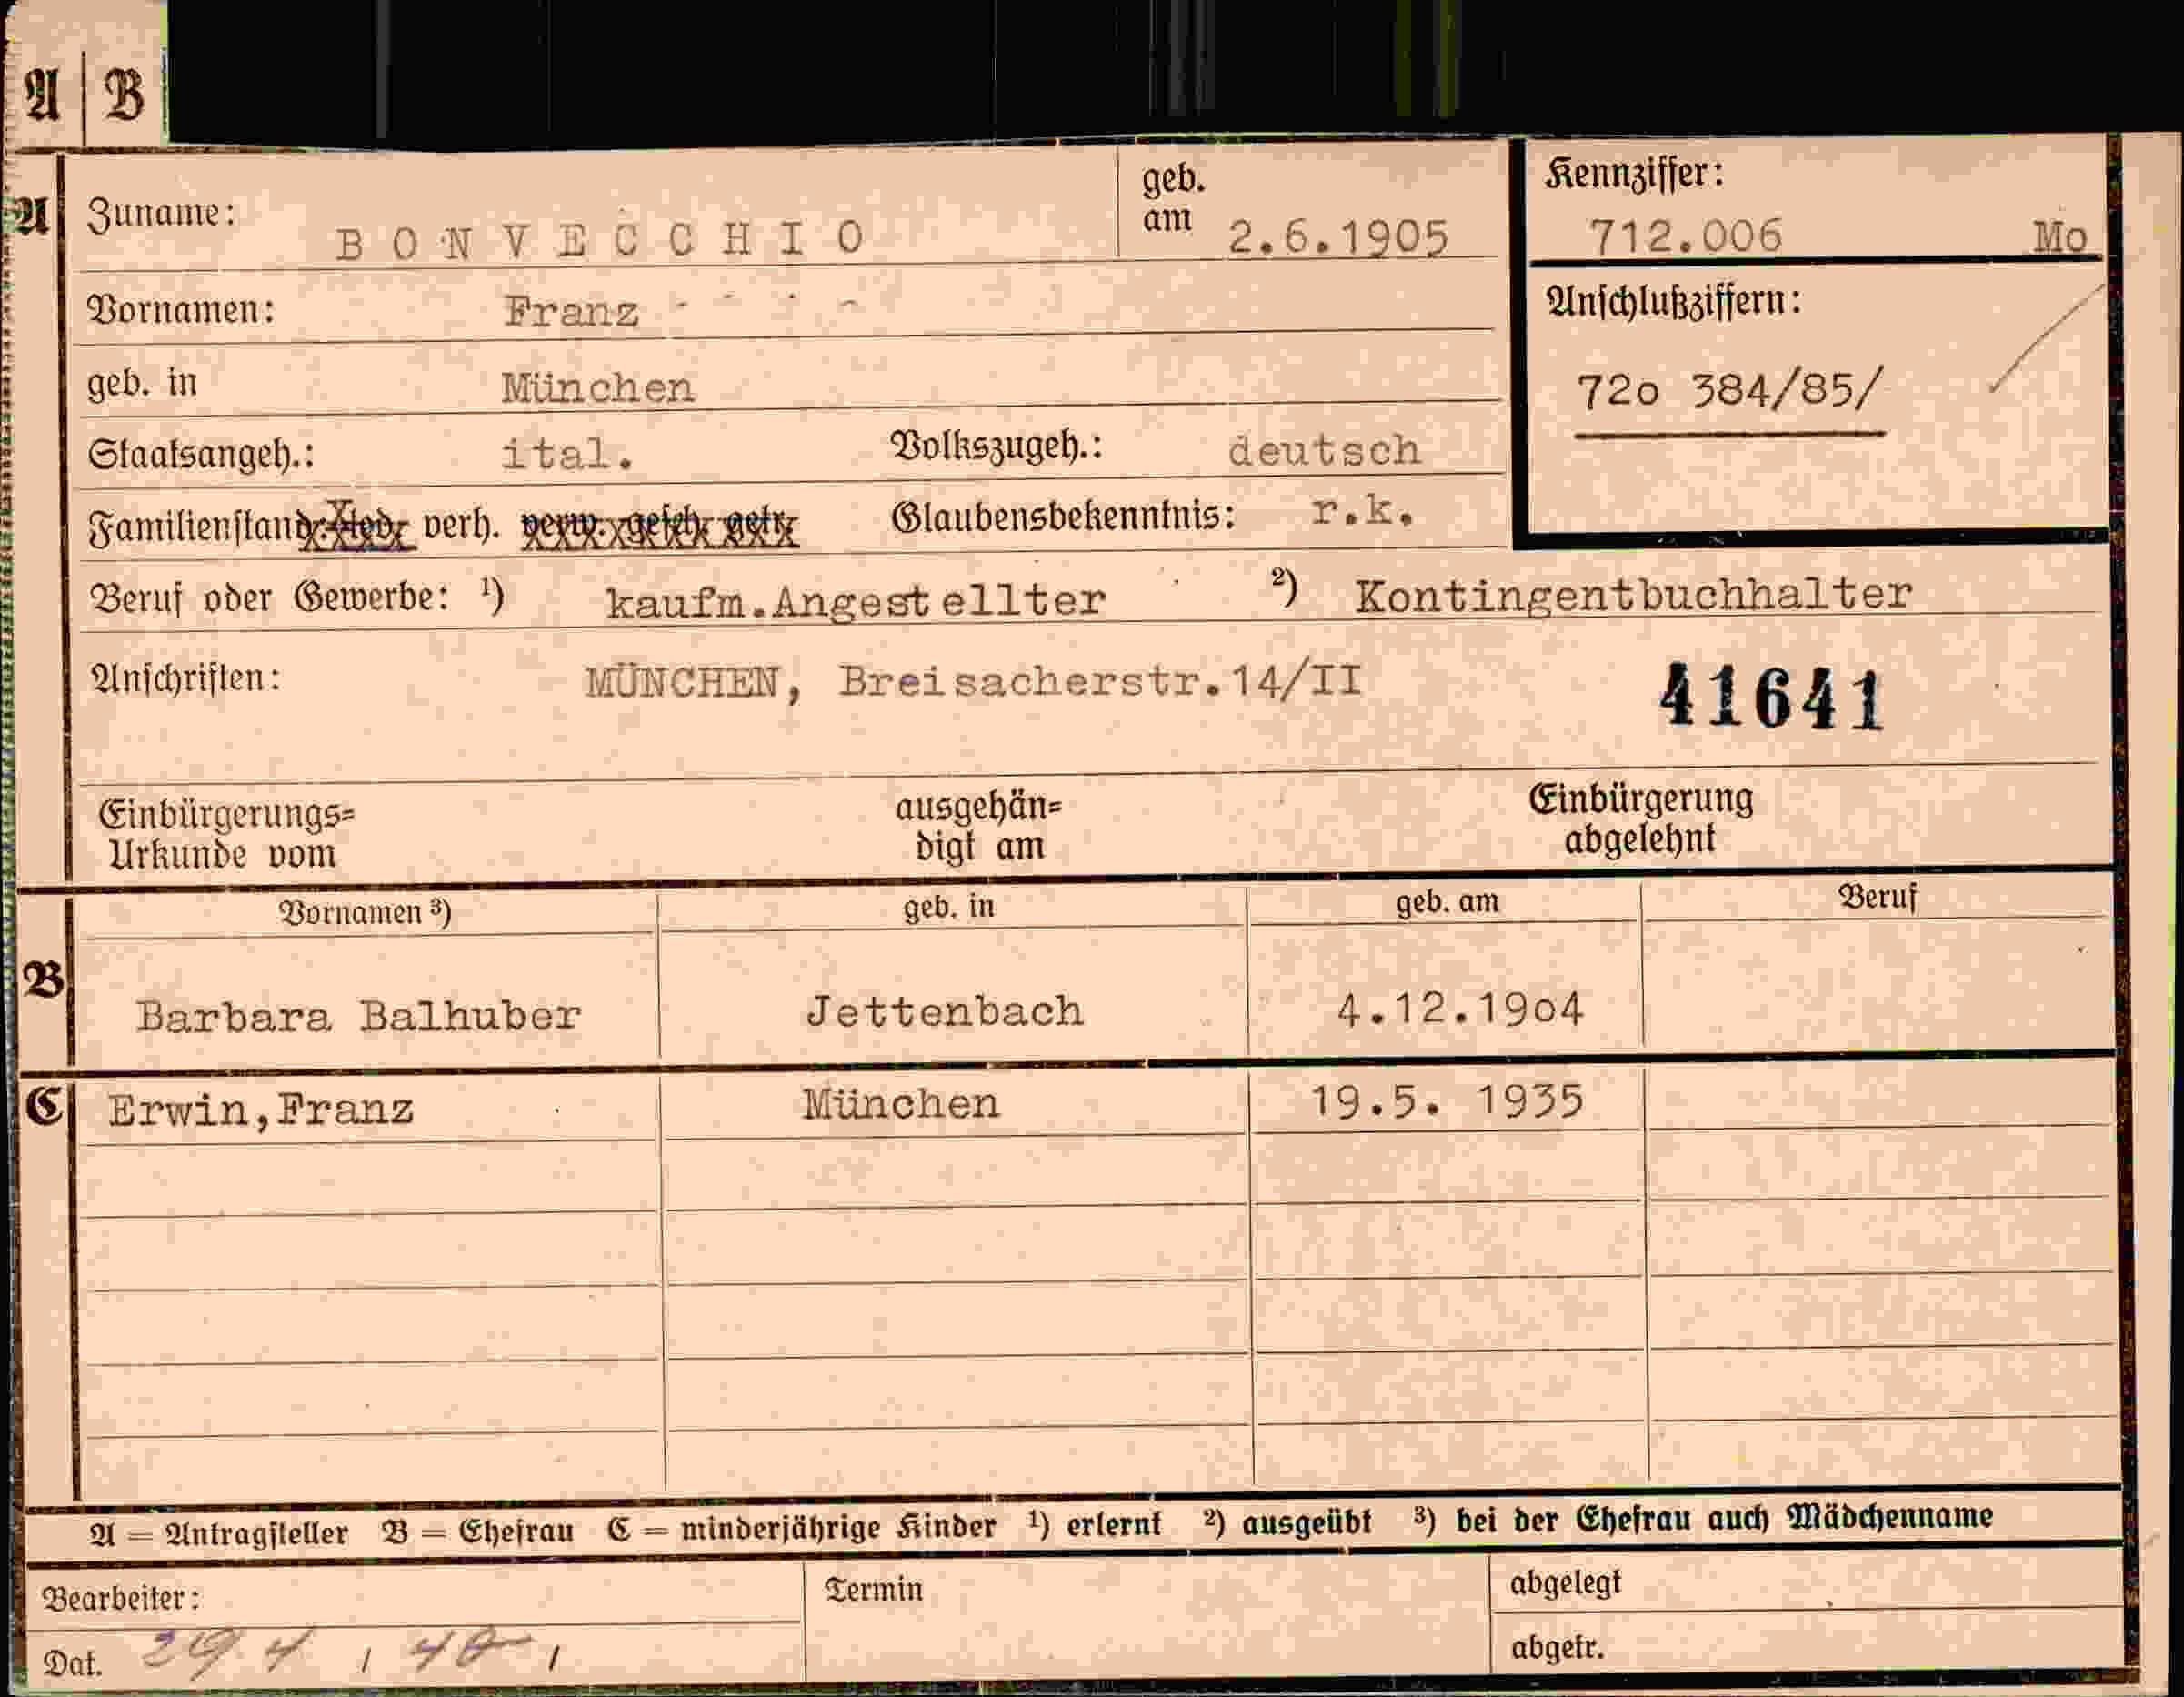 A | B
A Zuname: BONVECCHIO geb. am 2.6.1905
Kennziffer:
712.006 Mo
Vornamen: Franz - - - -
Anschlußziffern:
72o 384/85/
geb. in München
Staatsangeh.: ital. Volkszugeh.: deutsch
Familienstand: led. verh. verw. gesch. getr. Glaubensbekenntnis: r.k.
Beruf oder Gewerbe: ¹) kaufm.Angestellter ²) Kontingentbuchhalter
Anschriften: MÜNCHEN, Breisacherstr.14/II 41641
Einbürgerungs= ausgehän= Einbürgerung
Urkunde vom digt am abgelehnt
Vornamen ³) geb. in geb. am Beruf
B Barbara Balhuber Jettenbach 4.12.19o4
C Erwin,Franz München 19.5. 1935
A = Antragsteller B = Ehefrau C = minderjährige Kinder ¹) erlernt ²) ausgeübt ³) bei der Ehefrau auch Mädchenname
Bearbeiter: Termin abgelegt
Dat. 29.4 / 40 / abgetr.